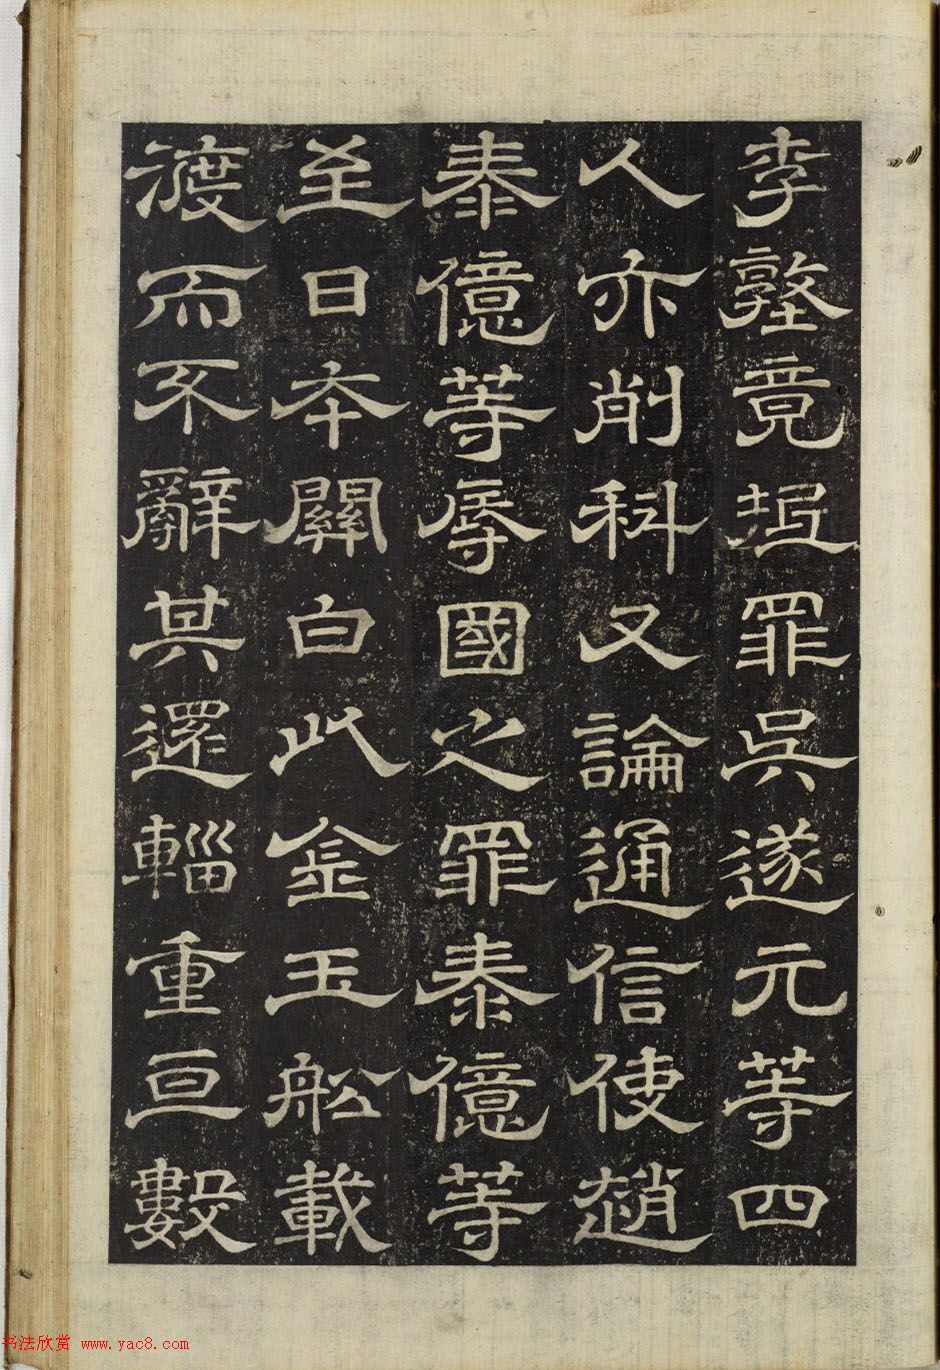 李墪竟罪吳遂元等四
人亦削科又論通信使趙
泰億等辱國之罪泰億等
至日本關白以金玉舩載
渡而不辭其還輜重亘數
书法欣赏 www.yac8.com